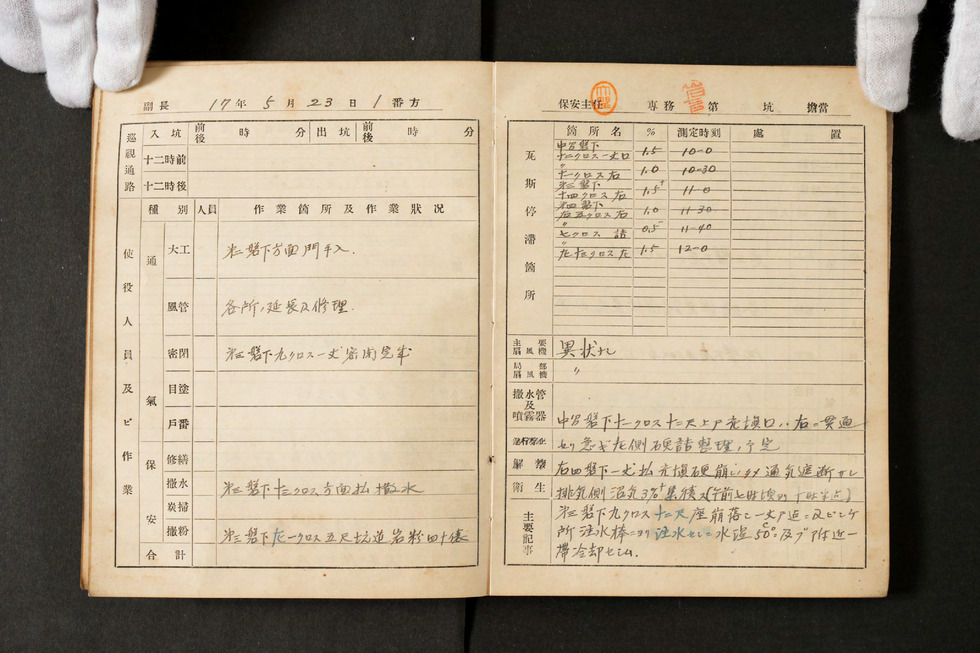 副長 17年5月23日1番方
巡視通路
入坑 前後 時 分 出坑 前後 時 分
十二時前
十二時後
使役人員及ビ作業
種別 人員 作業箇所及作業状況
通氣保安
大工 第三盤下方面門手入.
風管 各所、延長及修理.
密閉 第三盤下九クロス一丈密閉完成
目塗
戸番
修繕
撒水 第三盤下十三クロス方面払撒水
炭掃
撒粉 第三盤下左一クロス五尺坑道岩粉四十袋
合計
保安主任 専務 第 坑 擔當
瓦斯停滞箇所
箇所名 % 測定時刻 處置
中宮盤下
十二クロス一丈口 1.5 10-0
〃
十一クロス右 1.0 10-30
第三盤下
十四クロス右 1.5 11-0
第四盤下
右五クロス右 1.0 11-30
〃
七クロス 詰 0.5 11-40
〃
クロス左 1.5 12-0
主要扇風機 異状ナシ
局部扇風機 〃
撒水管及噴霧器
中宮盤下十一クロス十二尺上戸充填口、右ニ貫通
セリ急ギ左側硬詰整理ノ予定
衛生
右四盤下一丈払充填硬崩レノタメ通気遮断サレ
排気側沼気3%集積ス(午前七時頃ヨリ十時半迄)
主要記事
第三盤下九クロス十二尺座崩落シ一丈戸迫ニ及ビシ
所注水棒ニヨリ注水セシニ水温50℃ニ及ブ附近一
帯冷却セシム.